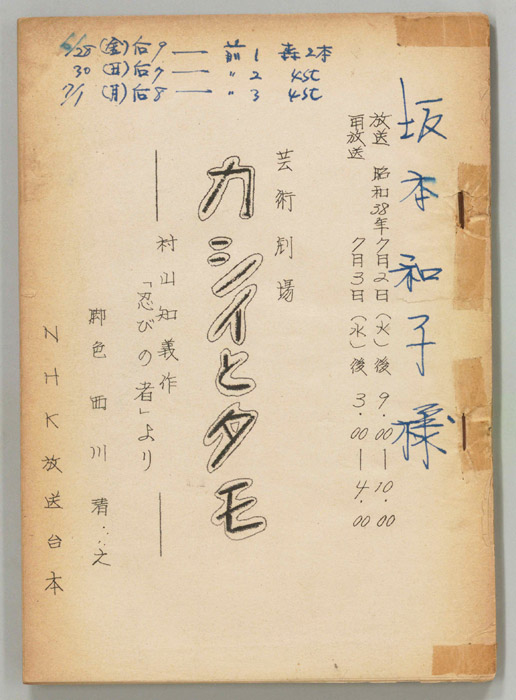 6/28(金)后9 ── 前1 森2本
30(日)后7 ── 〃2 4st
7/1(月)后8 ── 〃3 4st
坂本和子様
放送 昭和38年7月2日(火)後 9.00─10.00
再放送 7月3日(水)後 3.00─4.00
芸術劇場
カシイとタモ
── 村山知義作 ──
「忍びの者」より
脚色 西川清之
NHK放送台本